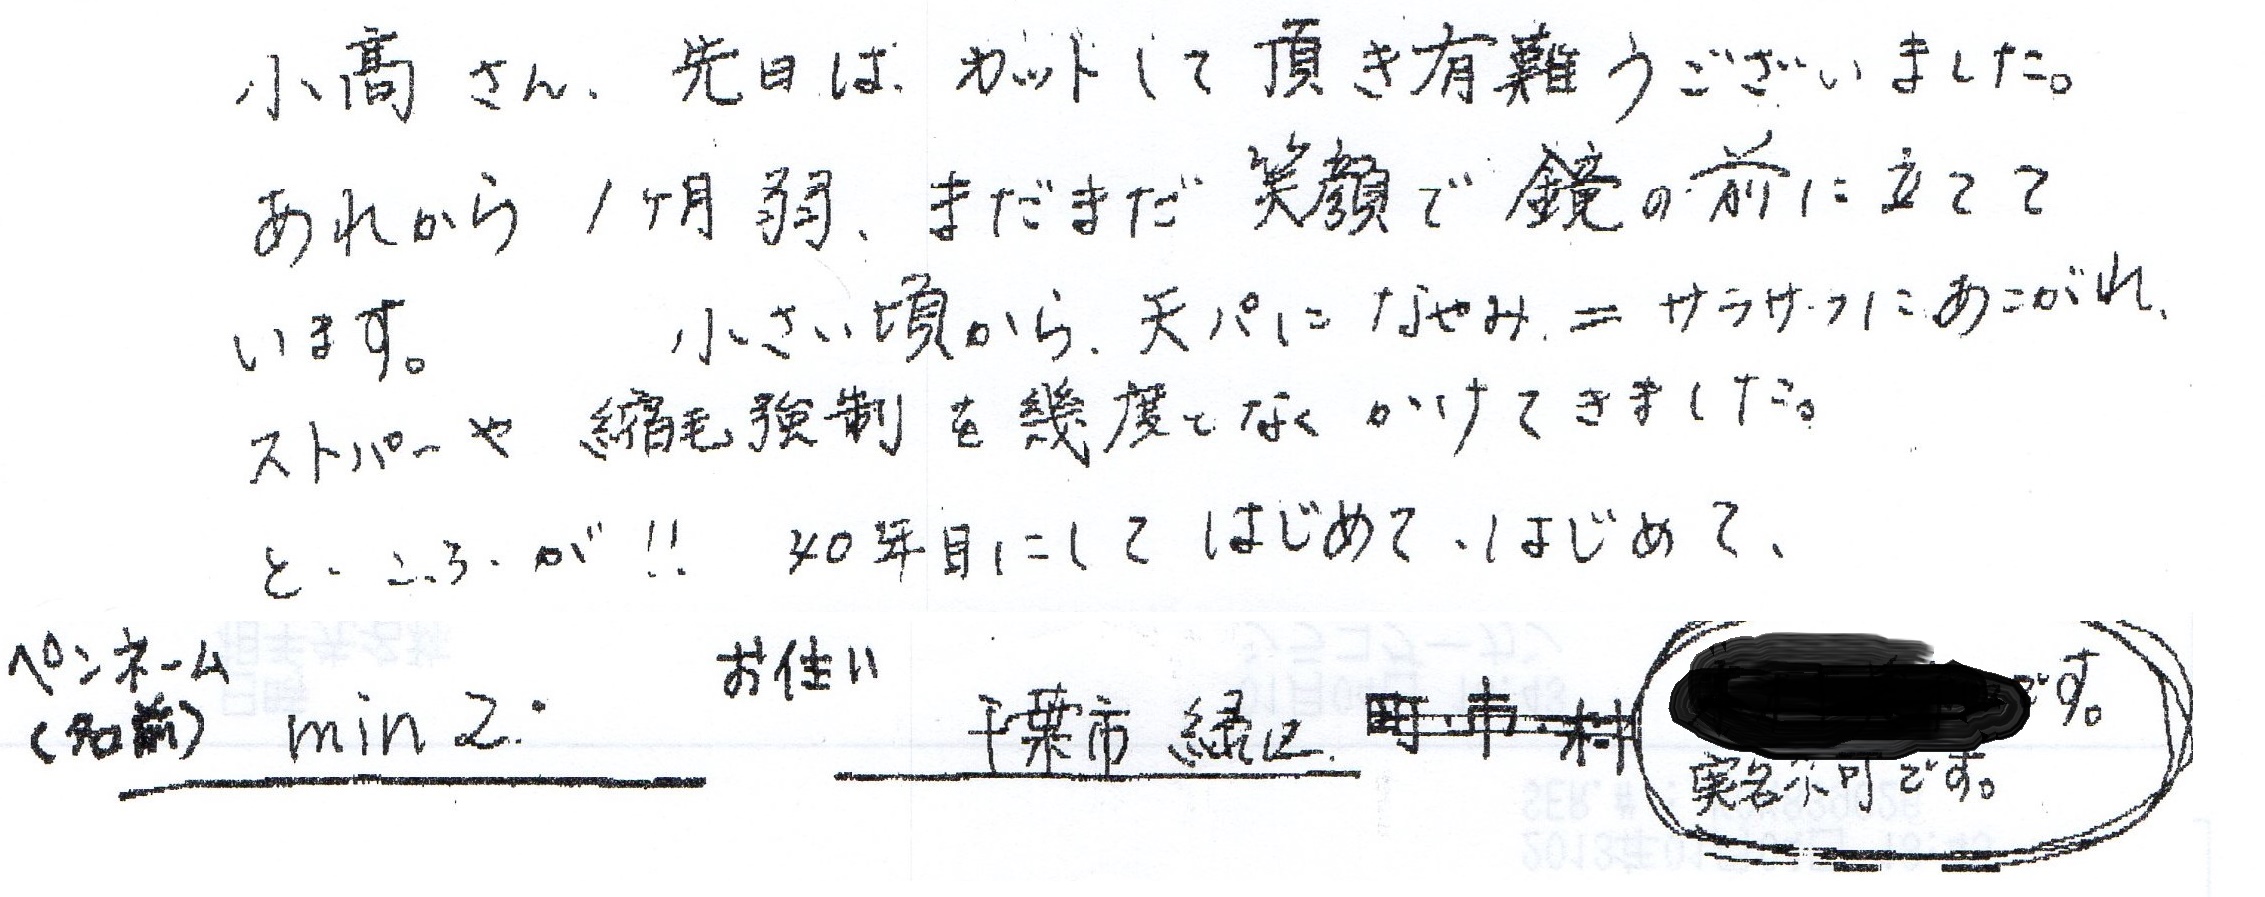 小高さん、先日は、カットして頂き有難うございました。
あれから1ヶ月弱、まだまだ笑顔で鏡の前に立てて
います。 小さい頃から、天パになやみ、=サラサラにあこがれ、
ストパーや縮毛強制を幾度となくかけてきました。
と・ころ・が!! 40年目にしてはじめて、はじめて、
ペンネーム
(名前) min 2. お住い 千葉市 緑区. 町・市・村
です。
実名不可です。